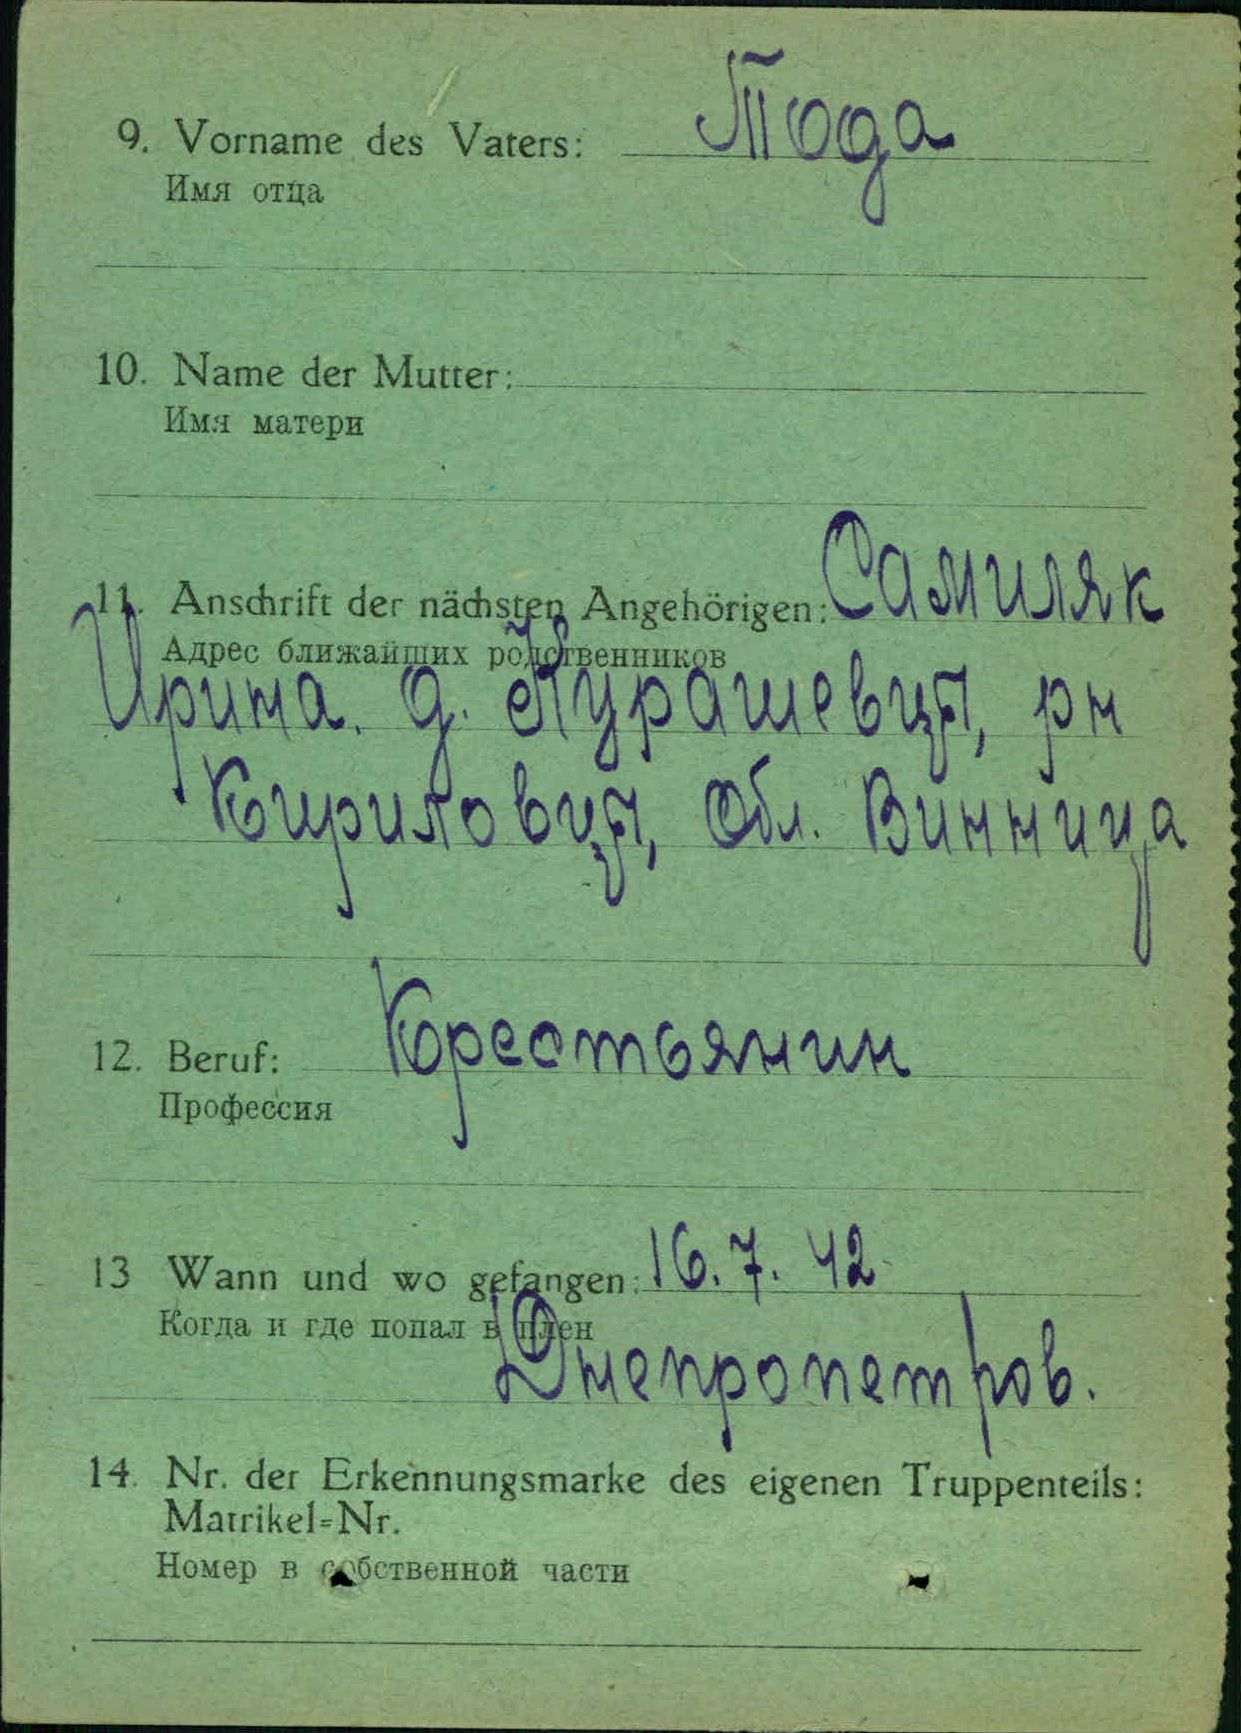 9. Vorname des Vaters: Тода
Имя отца
10. Name der Mutter:
Имя матери
11. Anschrift der nächsten Angehörigen: Самиляк
Адрес ближайших родственников
Ирина. д. Лурашевця, рн
Кириловця, Обл. Винница
12. Beruf: Крестьянин
Профессия
13 Wann und wo gefangen: 16.7.42
Когда и где попал в плен
Днепропетров.
14. Nr. der Erkennungsmarke des eigenen Truppenteils:
Matrikel=Nr.
Номер в собственной части